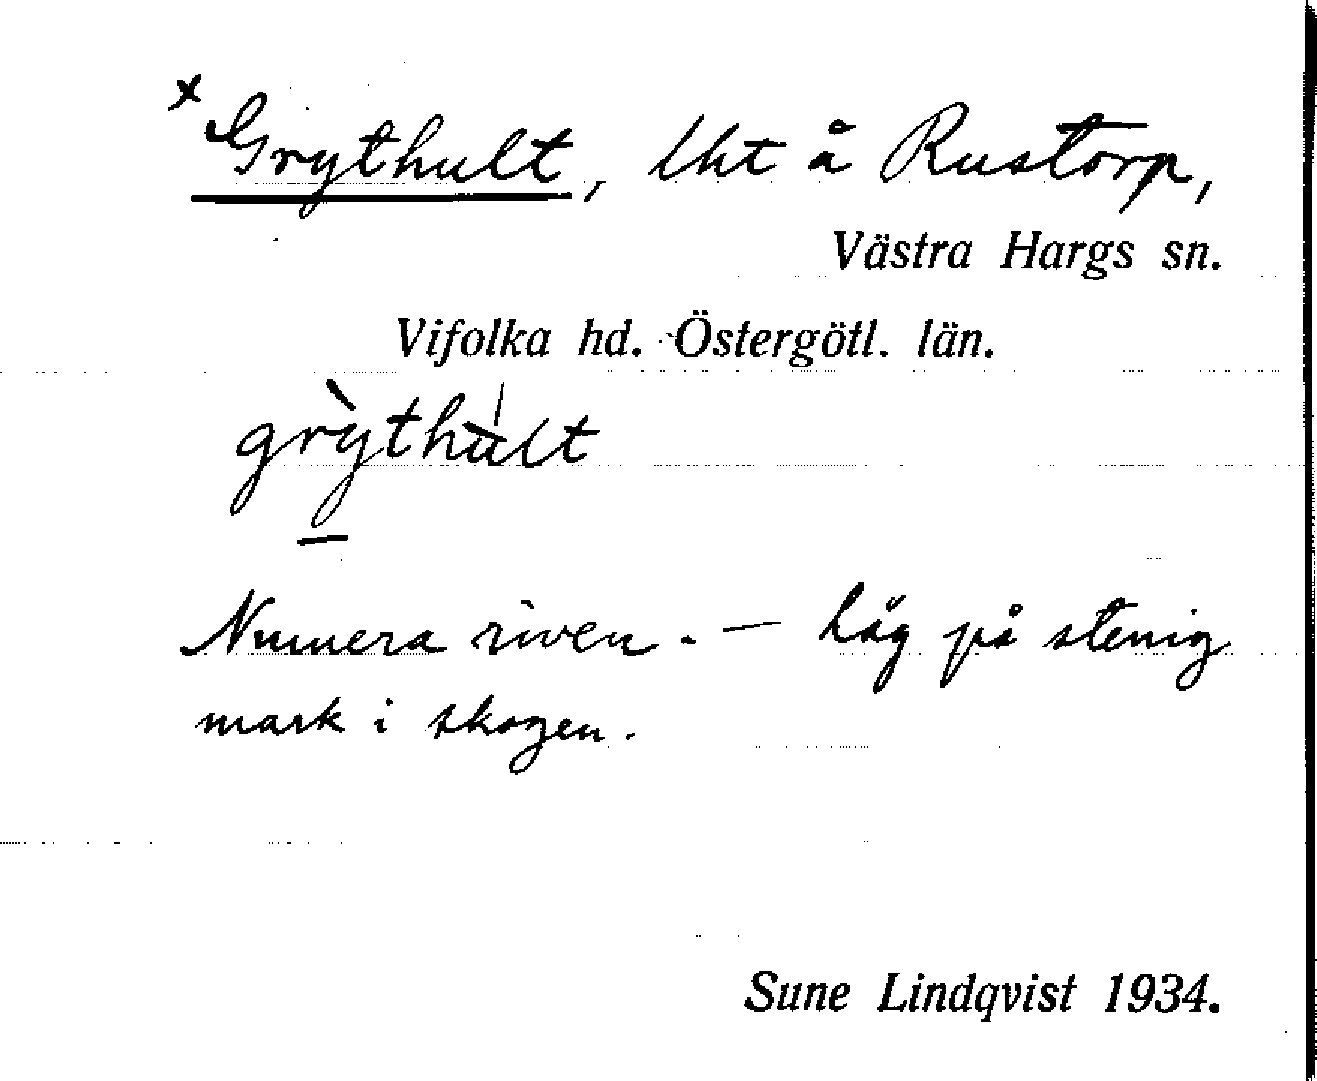 x Grythult, lht å Rustorp,
Västra Hargs sn.
Vifolka hd. Östergötl. län.
grỳthùlt
Numera riven. — Låg på stenig
mark i skogen.
Sune Lindqvist 1934.